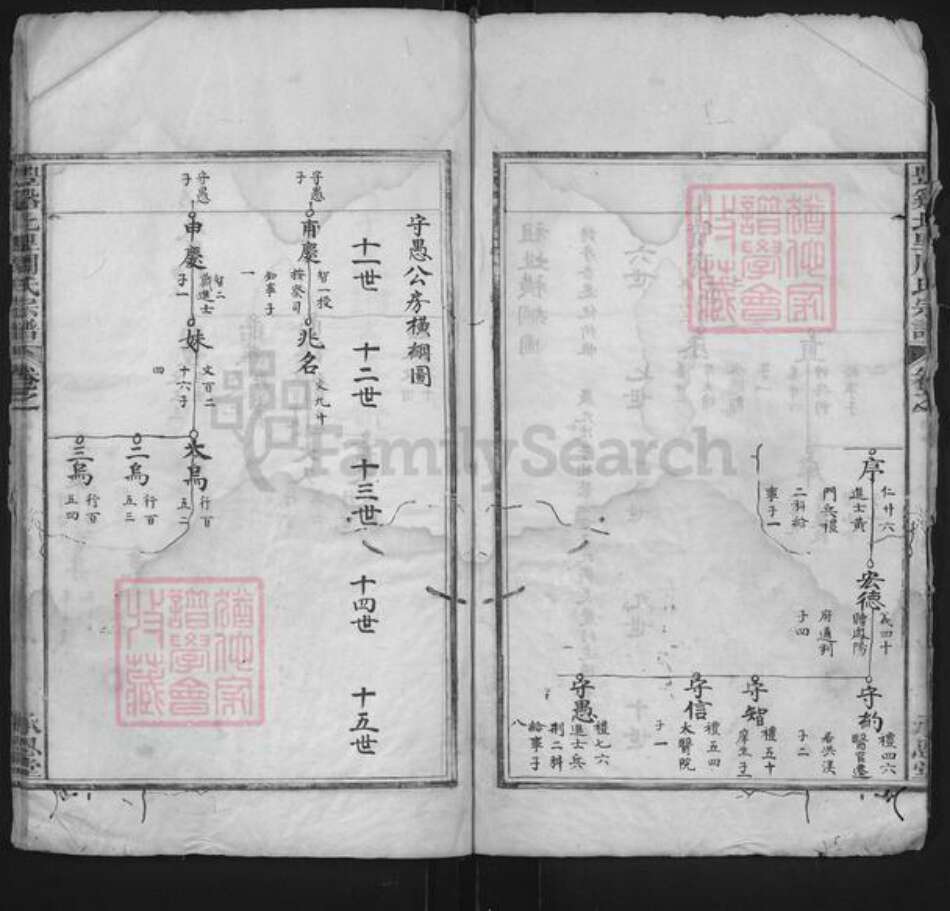 序
仁廿六
進士黃
門兵禮
二科給
事子一
宏德
義四十
時岳陽
府通判
子四
守約
禮四六
醫官遷
希洪漠
子二
守智
禮五十
庠生子
守信
禮五四
太醫院
子一
守愚
禮七六
進士兵
刑二科
給事子
八
守愚公房橫綱圖
十一世
十二世
十三世
十四世
十五世
守愚
子
甫慶
智一授
按察司
知事子
一
兆名
文九十
守愚
子
申慶
智二
歲進士
子一
妹
文百二
十六子
四
大烏
行百
五二
二烏
行百
五三
三烏
行百
五四
譜學會
收藏
FamilySearch